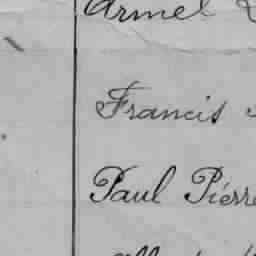 Armel
Francis
Paul Piérre